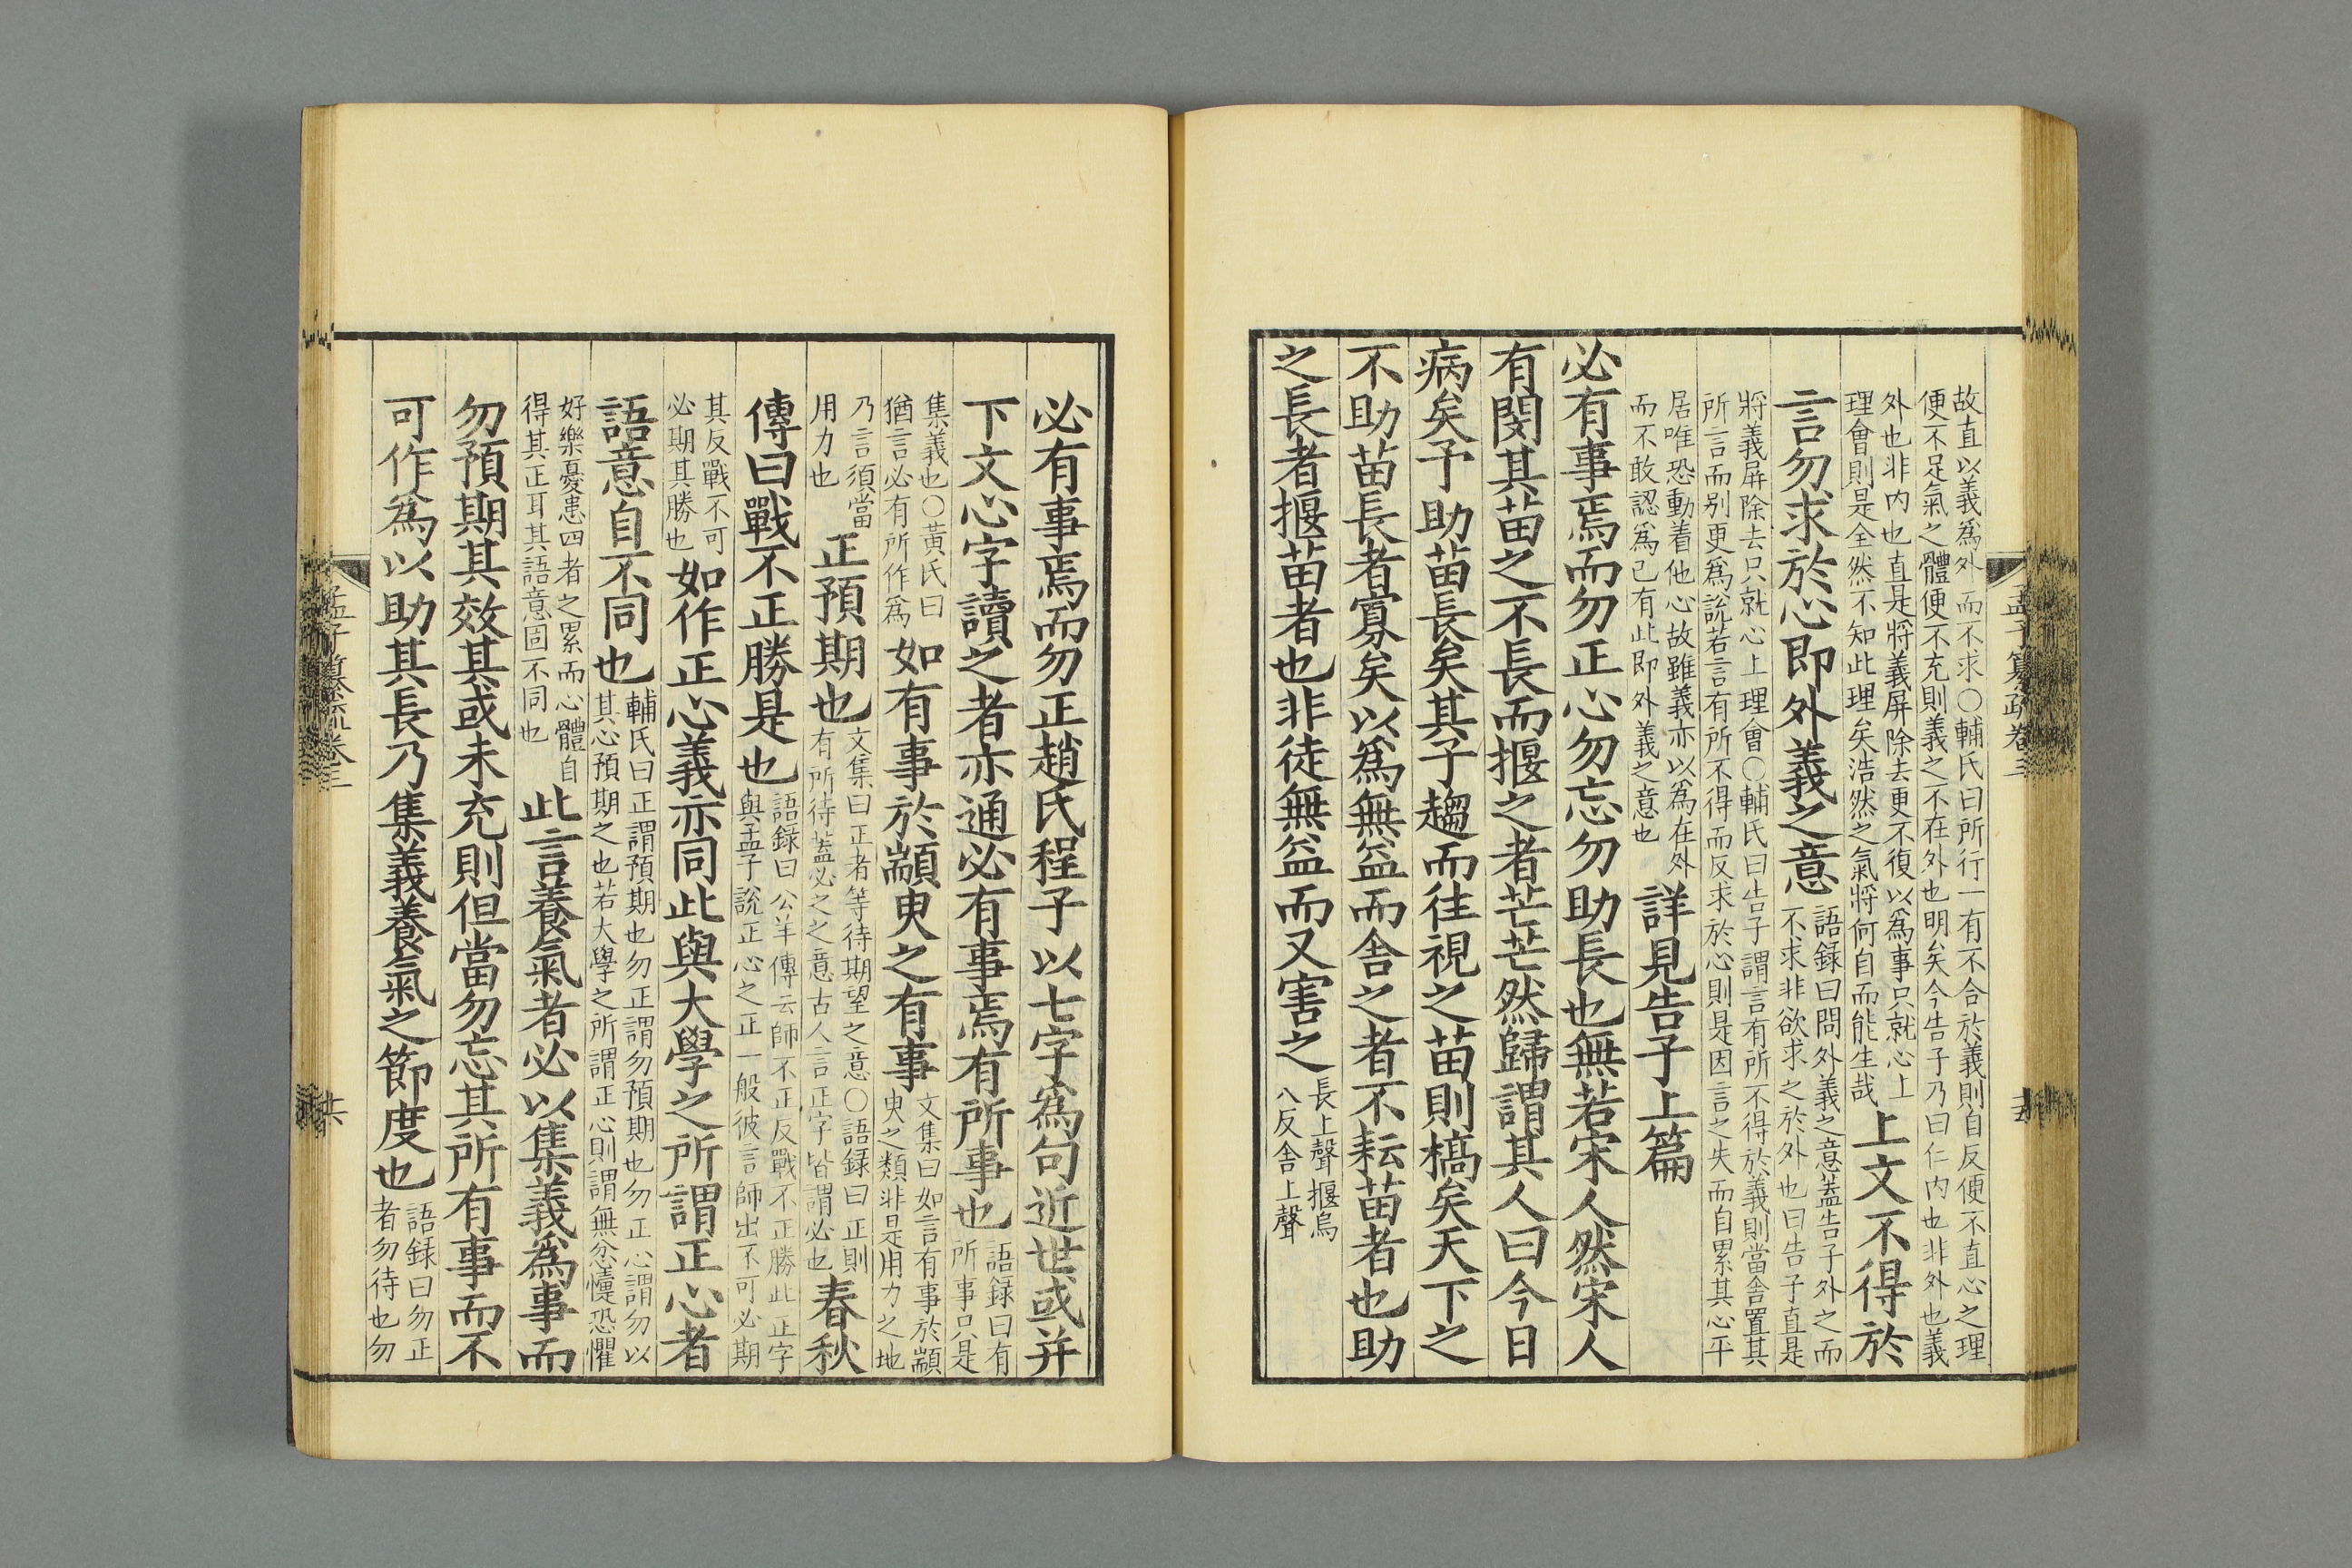 故直以義爲外而不求〇輔氏曰所行一有不合於義則自反便不直心之理
便不足氣之體便不充則義之不在外也明矣今告子乃曰仁内也非外也義
外也非内也直是將義屏除去更不復以爲事只就心上
理會則是全然不知此理矣浩然之氣將何自而能生哉
上文不得於
言勿求於心即外義之意
語録曰問外義之意蓋告子外之而
不求非欲求之於外也曰告子直是
將義屏除去只就心上理會〇輔氏曰告子謂言有所不得於義則當舍置其
所言而别更爲說若言有所不得而反求於心則是因言之失而自累其心平
居唯恐動着他心故雖義亦以爲在外
而不敢認爲己有此即外義之意也
詳見告子上篇
必有事焉而勿正心勿忘勿助長也無若宋人然宋人
有閔其苗之不長而揠之者芒芒然歸謂其人曰今日
病矣予助苗長矣其子趨而往視之苗則槁矣天下之
不助苗長者寡矣以爲無益而舍之者不耘苗者也助
之長者揠苗者也非徒無益而又害之
長上聲揠烏
八反舍上聲
孟子纂疏卷三
必有事焉而勿正趙氏程子以七字爲句近世或并
下文心字讀之者亦通必有事焉有所事也
語録曰有
所事只是
集義也〇黃氏曰
猶言必有所作爲
如有事於顓臾之有事
文集曰如言有事於顓
臾之類非是用力之地
乃言須當
用力也
正預期也
文集曰正者等待期望之意〇語録曰正則
有所待蓋必之之意古人言正字皆謂必也
春秋
傳曰戰不正勝是也
語録曰公羊傳云師不正反戰不正勝此正字
與孟子說正心之正一般彼言師出不可必期
其反戰不可
必期其勝也
如作正心義亦同此與大學之所謂正心者
語意自不同也
輔氏曰正謂預期也勿正謂勿預期也勿正心謂勿以
其心預期之也若大學之所謂正心則謂無忿懥恐懼
好樂憂患四者之累而心體自
得其正耳其語意固不同也
此言養氣者必以集義爲事而
勿預期其效其或未充則但當勿忘其所有事而不
可作爲以助其長乃集義養氣之節度也
語録曰勿正
者勿待也勿
孟子纂疏卷三